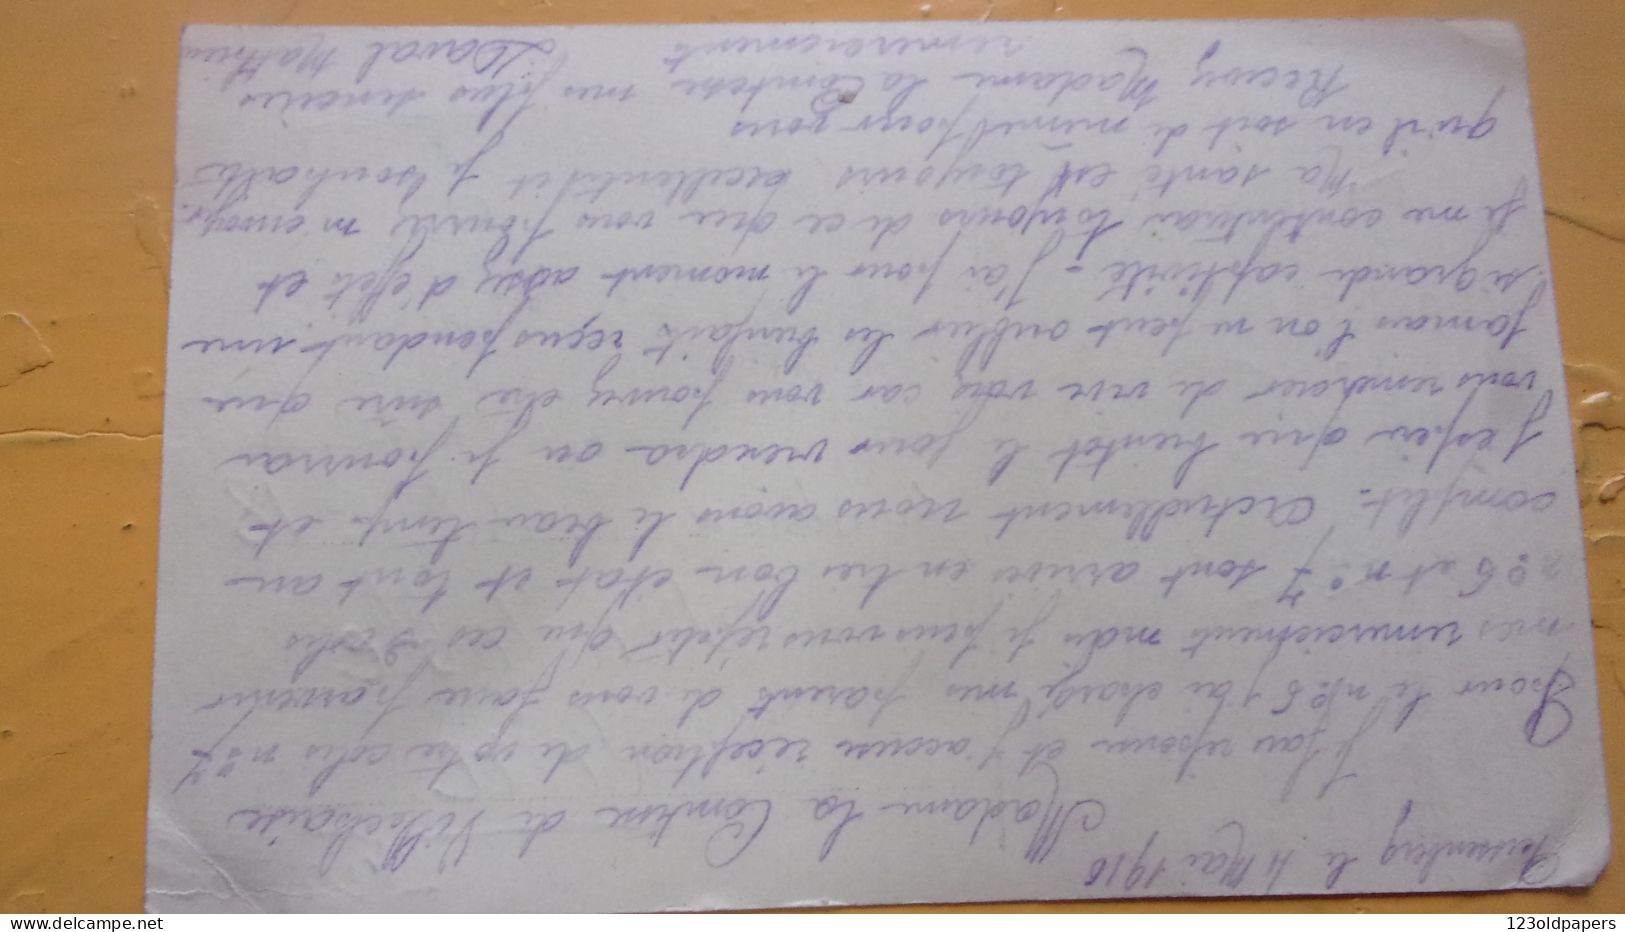 le 4 Mai 1916
Madame la Comtesse de Villechaise
Je fais réponse et j'accuse réception de votre colis n° 7
Pour le n° 6 j'ai chargé mes parents de vous faire parvenir
mes remerciements mais je peux vous répéter que ces colis
n° 6 et n° 7 sont arrivé en très bon état et tout au
complet - Actuellement nous avons le beau temps et
J'espère que bientôt le jour viendra ou je pourrai
vous remercier de vive voix, car vous pouvez etre sûre que
Jamais l'on ne peut oublier les bienfaits reçus pendant une
si grande captivité - J'ai pour le moment assez d'effets et
Je me contenterai toujours de ce que vous pourrez m'envoyer.
Ma santé est toujours excellente et je souhaite
qu'il en soit de même pour vous
Recevez Madame la Comtesse mes plus sincères
remerciements Laval Mathieu
123oldpapers